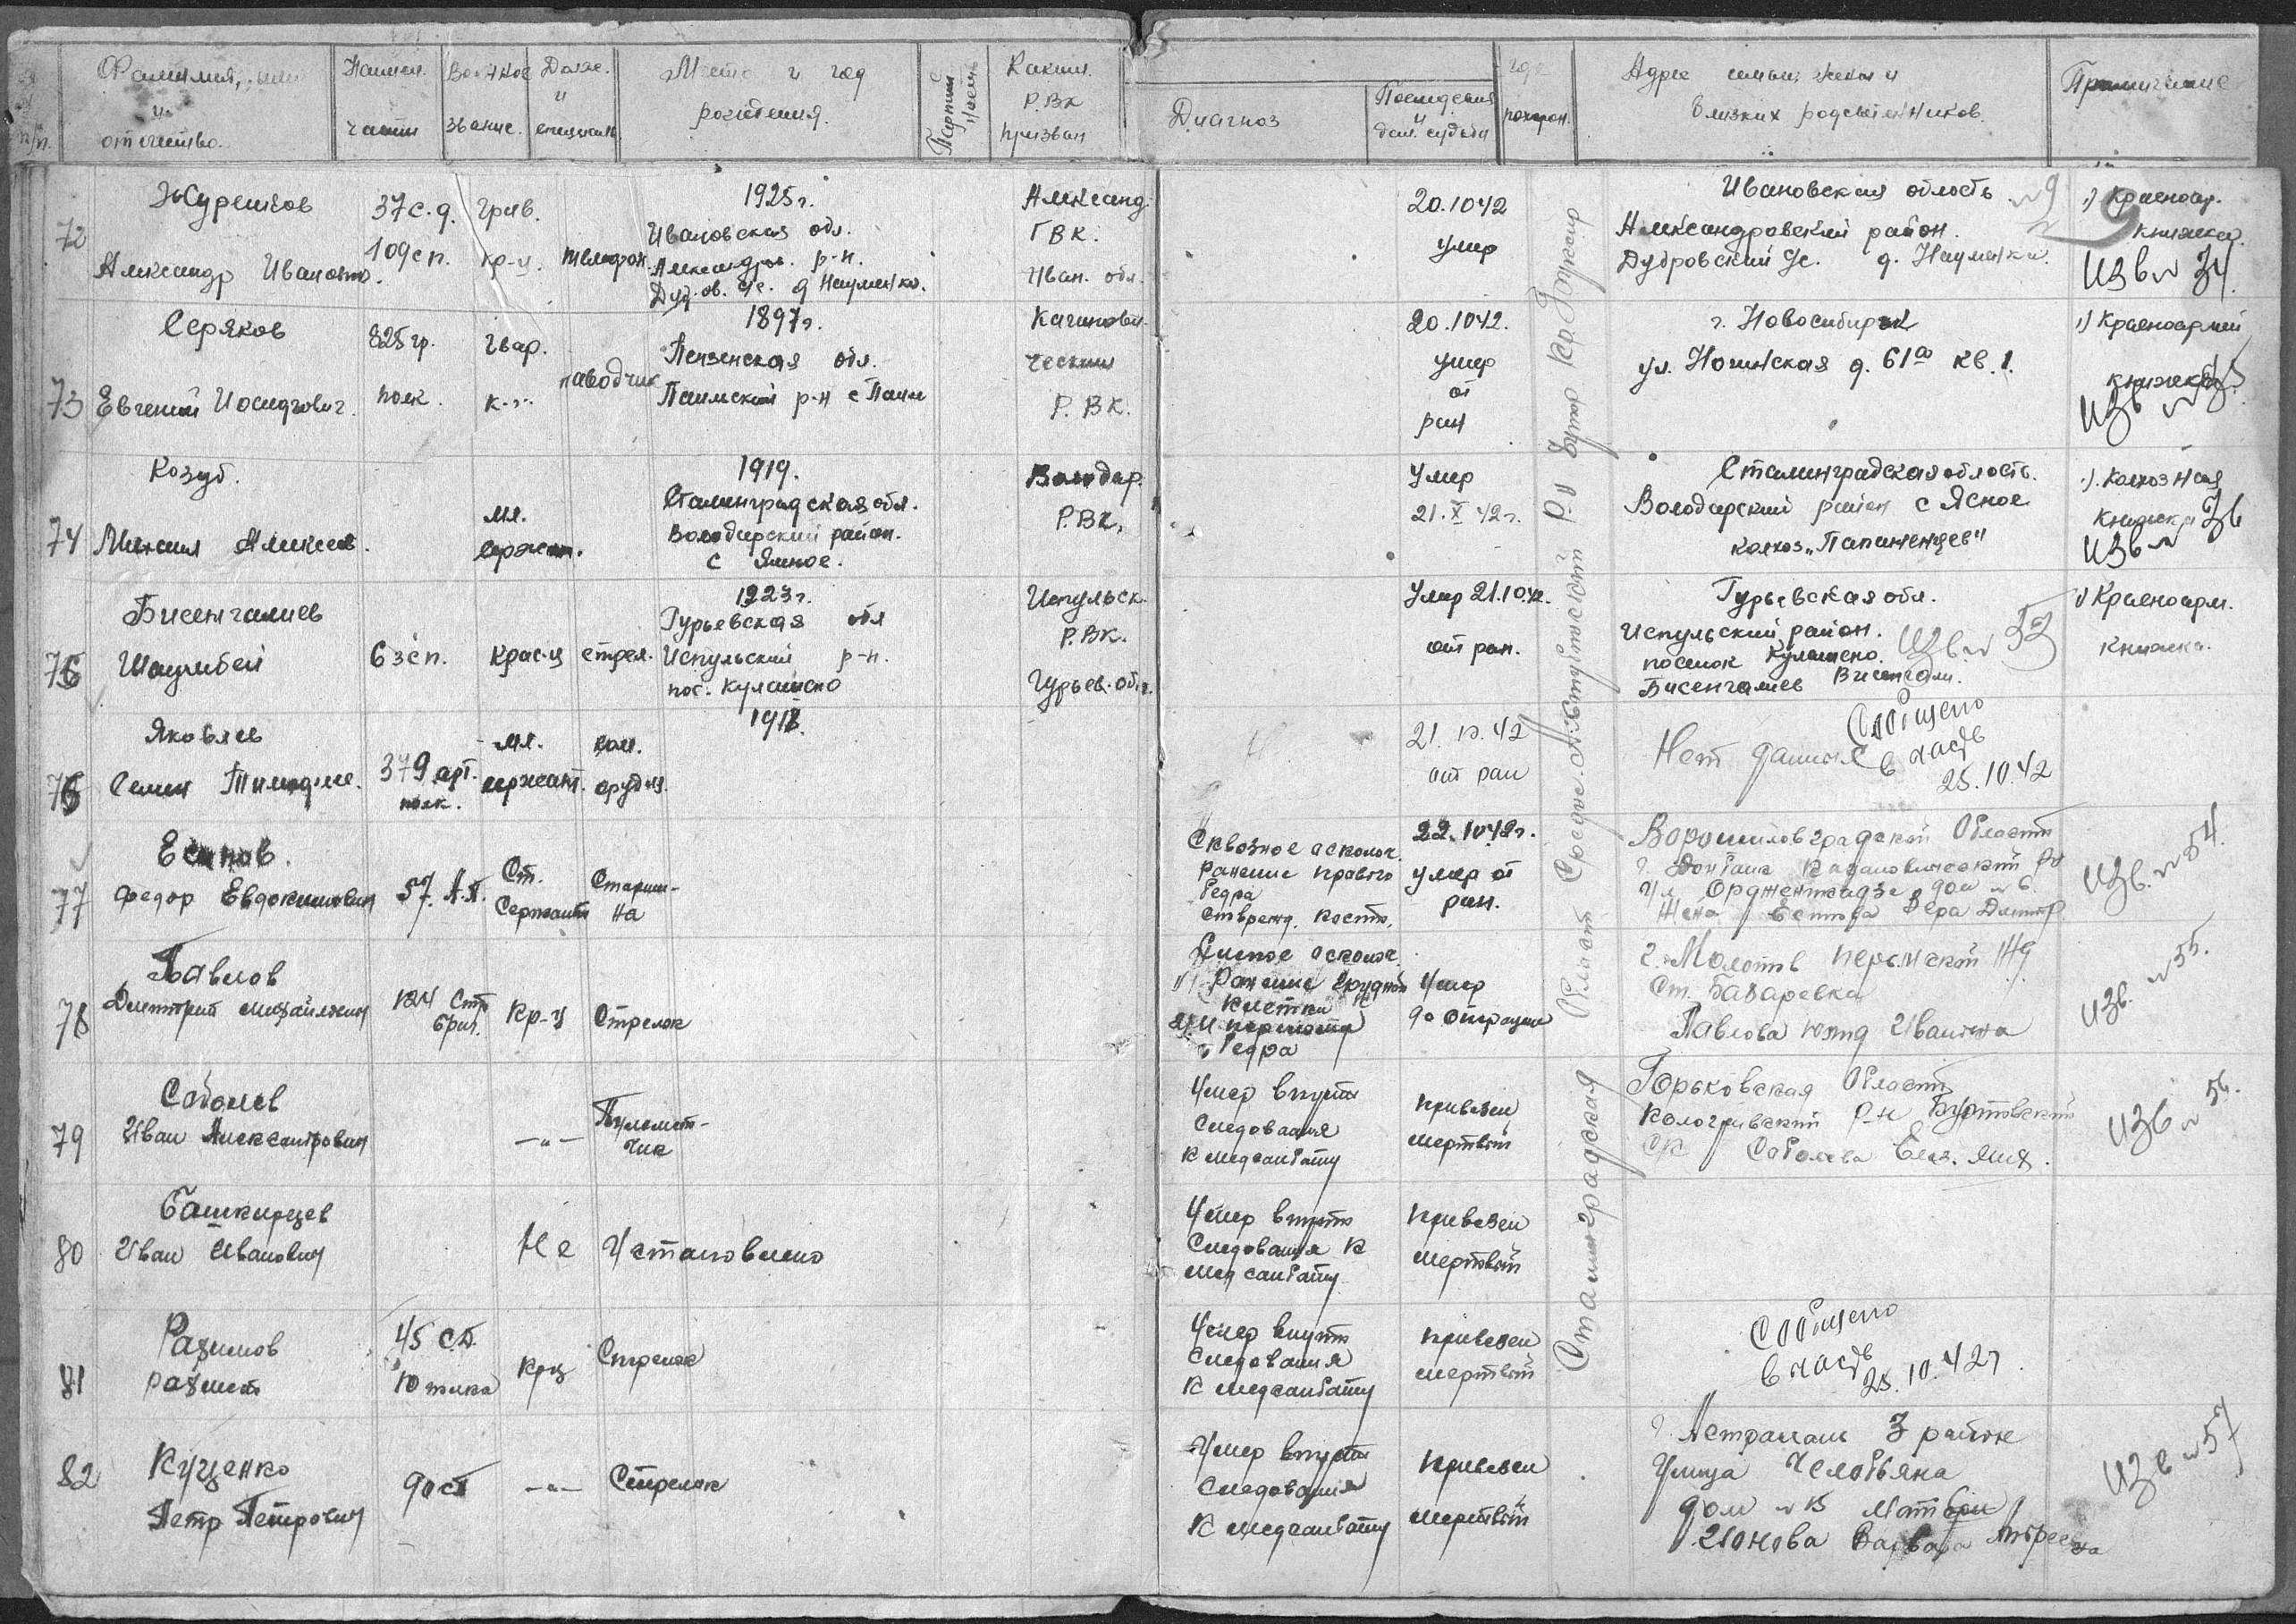 Фамилия, имя и отчество.
Наимен. части
Военное звание.
Долж. и специальн.
Место и год рождения.
Партийность
Каким Р.ВК призван
Диагноз
Последствия и дал. судьба
где похорон.
Адрес семьи, жены и близких родственников.
Примечание
72
Журешков
Александр Иванович.
37 с.д.
109 с п.
гв.
кр-ц.
телефон.
1925 г.
Ивановская обл.
Александров. р-н.
д Науменко.
Александ.
ГВК.
Иван. обл.
20.10 42
умер
Ивановская область
Александровский район.
Дубровский с/с. д. Науменки.
1) Красноар.
книжка.
Изв № 34.
73
Серяков
Евгений Иосифович.
825 гр.
полк.
Гвар.
к-ц.
наводчик
1897 г.
Пензенская обл.
Паимский р-н с Паим
Каганович
ческим
Р. ВК.
20.10 42.
умер
от
ран
г. Новосибирск
ул. Ногинская д. 61а кв. 1.
1) Красноармей
книжка
Изв №
74
Козуб.
Михаил Алексеев.
мл.
сержант.
1919.
Сталинградская обл.
Володарский район.
с Ясное.
Володар.
Р.ВК.
Умер
21.X 42 г.
Сталинградская область.
Володарский район с Ясное
колхоз „Папаненцев"
1). Колхозная
книжка
Изв № 36
75
Бисенгалиев
Шаумбей
6 зсп.
крас-ц
стрел.
1923 г.
Гурьевская обл
Испульский р-н.
пос. Кулашено
Испульск.
Р.ВК.
Гурьев. обл.
Умер 21.10.42.
от ран.
Гурьевская обл.
Испульский район.
поселок Кулашено.
Бисенгалиев Бисенгали.
Изв. № 53
1) Красноарм.
книжка.
76
Яковлев
Семен Тимофее.
379 арт.
полк.
мл.
сержант.
ком.
орудия.
1918.
21. 10. 42
от ран
Нет данных
Сообщено
в часть
25.10.42
77
Есипов.
Федор Евдокимович
57. А.П.
Ст.
Сержант
Старши-
на
Сквозное осколоч.
ранение правого
бедра
с поврежд. кости.
22.10 42 г.
умер от
ран.
Ворошиловградской Области
г. Донбасс Кагановический рн
Ул Орджоникидзе дом № 6.
Жена Есипова Вера Дмитр
Изв. № 54.
78
Павлов
Дмитрий Михайлович
124 Стр
бриг.
Кр-ц
Стрелок
Слепое осколоч.
Ранение грудной
клетки
бедра
Умер
до операции
г. Молотов Пермской ЖД
Ст. Базаревка
Павлова Иванна
Изв. № 55.
79
Соболев
Иван Александрович
—"—
Пулемет-
чик
Умер впути
Следования
к медсанбату
привезен
мертвый
Горьковская Область
Кологривский р-н
С/С Соболева Ел.
Изв № 56.
80
Башкирцев
Иван Иванович
Не Установлено
Умер впути
Следования к
мед санбату
привезен
мертвый
81
Разимов
Размет
45 СД
10 полка
Крц
Стрелок
Умер впути
следования
к медсанбату
привезен
мертвый
Сообщено
в часть
25.10.42 г.
82
Куценко
Петр Петрович
90 сп
—"—
Стрелок
Умер впути
Следования
к медсанбату
привезен
мертвый
г. Астрахань 3 район
Улица
дом № 15 Мать
Варвара Андреевна
Изв № 57
Сталинградская Область Средне-Ахтубинский р-н Хутор Кр. Буксир